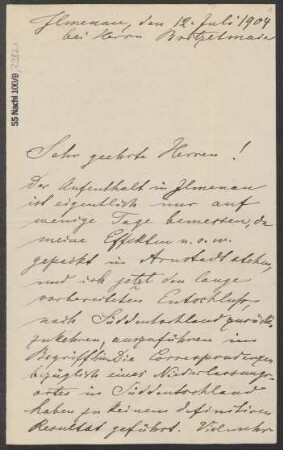 Ilmenau, den 12. Juli 1904
bei Herrn Bretzelmaier
55 Nachl 100/B,
Sehr geehrte Herren!
Der Aufenthalt in Ilmenau
ist eigentlich nur auf
wenige Tage bemessen, da
meine Effekten u. s. w.
gepackt in Arnstadt stehen,
und ich jetzt den lange
vorbereiteten Entschluss,
nach Süddeutschland zurück-
zukehren, auszuführen im
Begriff bin. Die Correspondenzen
bezüglich eines Niederlassungs-
ortes in Süddeutschland
haben zu keinem definitiven
Resultat geführt. Vielmehr